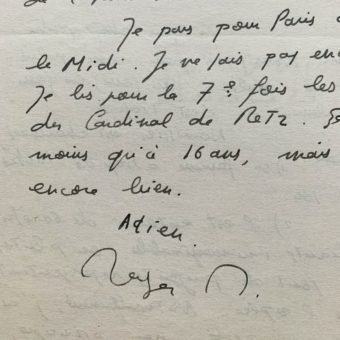 Je pars pour Paris
le Midi. Je ne sais pas en
Je lis pour la 7e fois les
du Cardinal de Retz.
moins qu'à 16 ans, mais
encore bien.
Adieu.